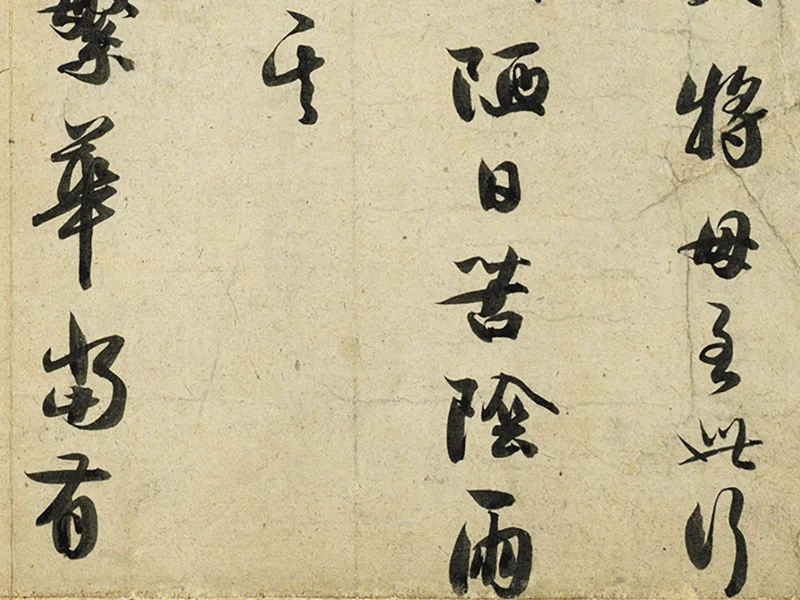 將母至此行
陋日苦陰雨
其
繁華當有